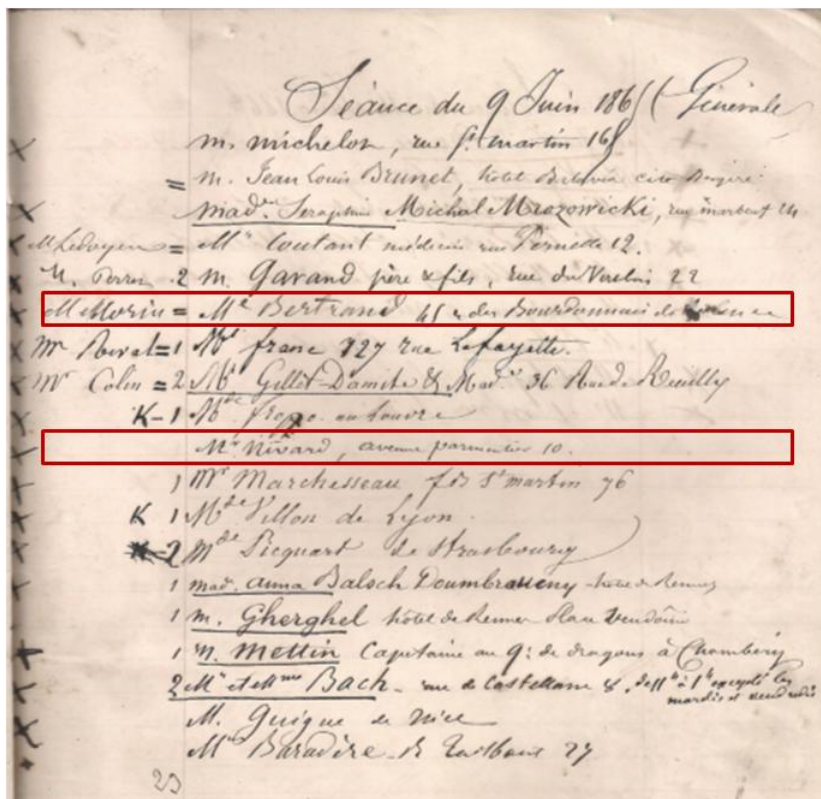 Séance du 9 Juin 1865 (Générale
m. michelon, rue St. martin 168
= m. Jean Louis Brunet, hotel cité Bergère
mad.e Seraphine Michal Mrozowicki, rue marbeuf 24
M Ledoyen = Mr Coutant médecin rue 12.
M. Perrer 2 m. Garand père & fils, rue du Verbois 22
M Morin = Mr Bertrand 45 r des Bourdonnais de
Mr Roval = 1 Mr franc 127 rue Lafayette.
Mr Colin = 2 Mr Gillet-Damitte & Mad.e 36 Rue de Reuilly
K - 1 Mde au Louvre
Mr Nivard, avenue parmentier 10.
1 Mr Marchesseau fg St martin 76
K 1 Mde Villon de Lyon.
K - 2 Mde Picquart de Strasbourg
1 mad. anna Balsch hotel de Rennes
1 m. Gherghel hotel de Rennes Place Vendôme
1 M. Mettin Capitaine au 9e de dragons à Chambéry
2 Mr et Mme Bach - rue de Castellane 8, de 11h à 1h excepté les
mardis et vendredis
M. Guigue de Nice
Mr Baradère R Taitbout 27
23